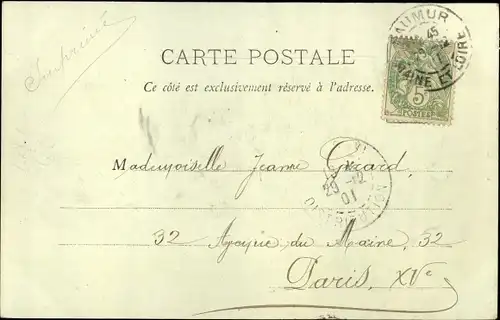 Imprimé
CARTE POSTALE
Ce côté est exclusivement réservé à l'adresse.
SAUMUR
MAINE ET LOIRE
5
POSTES
Mademoiselle Jeanne Girard,
20 -12
01
DISTRIBUTION
32 du Maine, 32
Paris, XVe